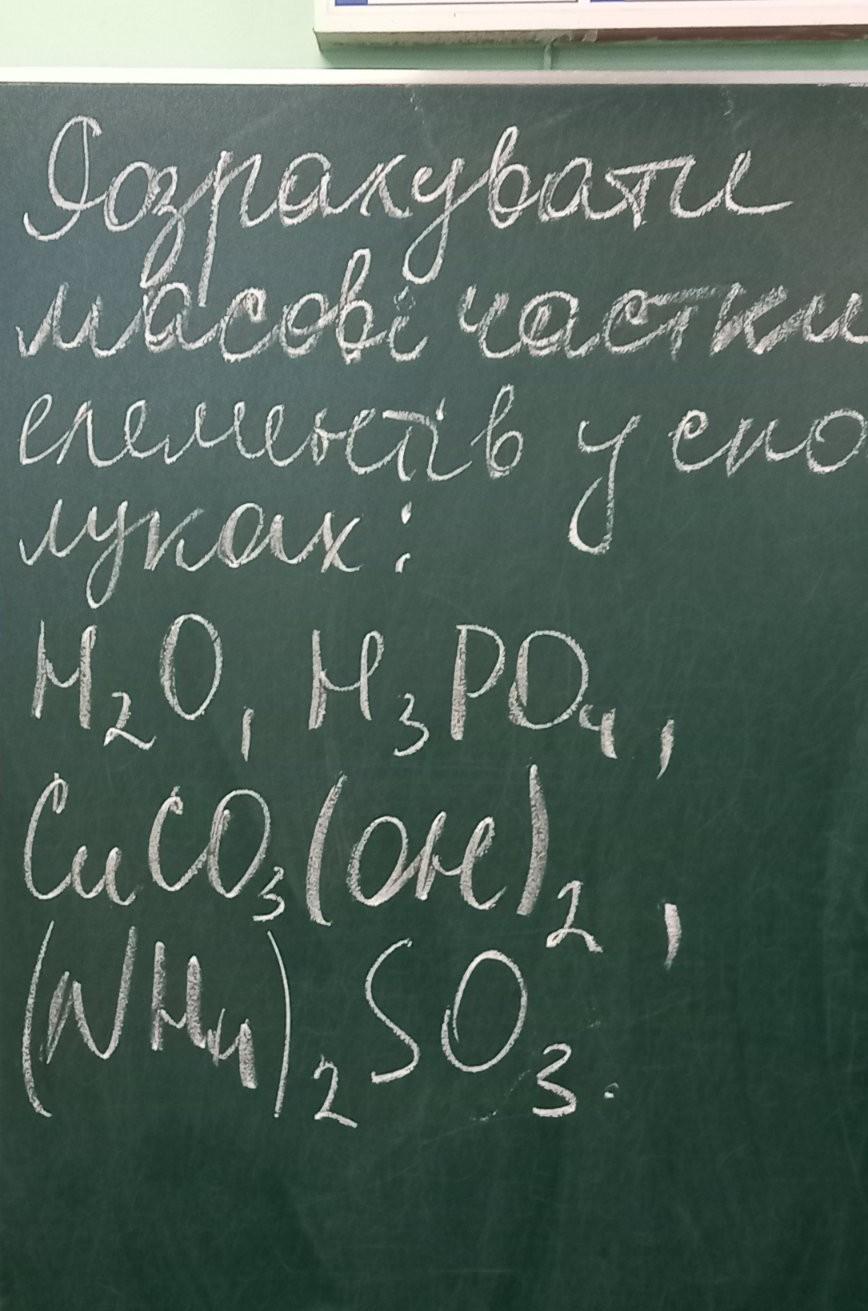 Розрахувати
масові частки
елементів у спо
луках:
H₂O, H₃PO₄,
CuCO₃(OH)₂,
(NH₄)₂SO₃.